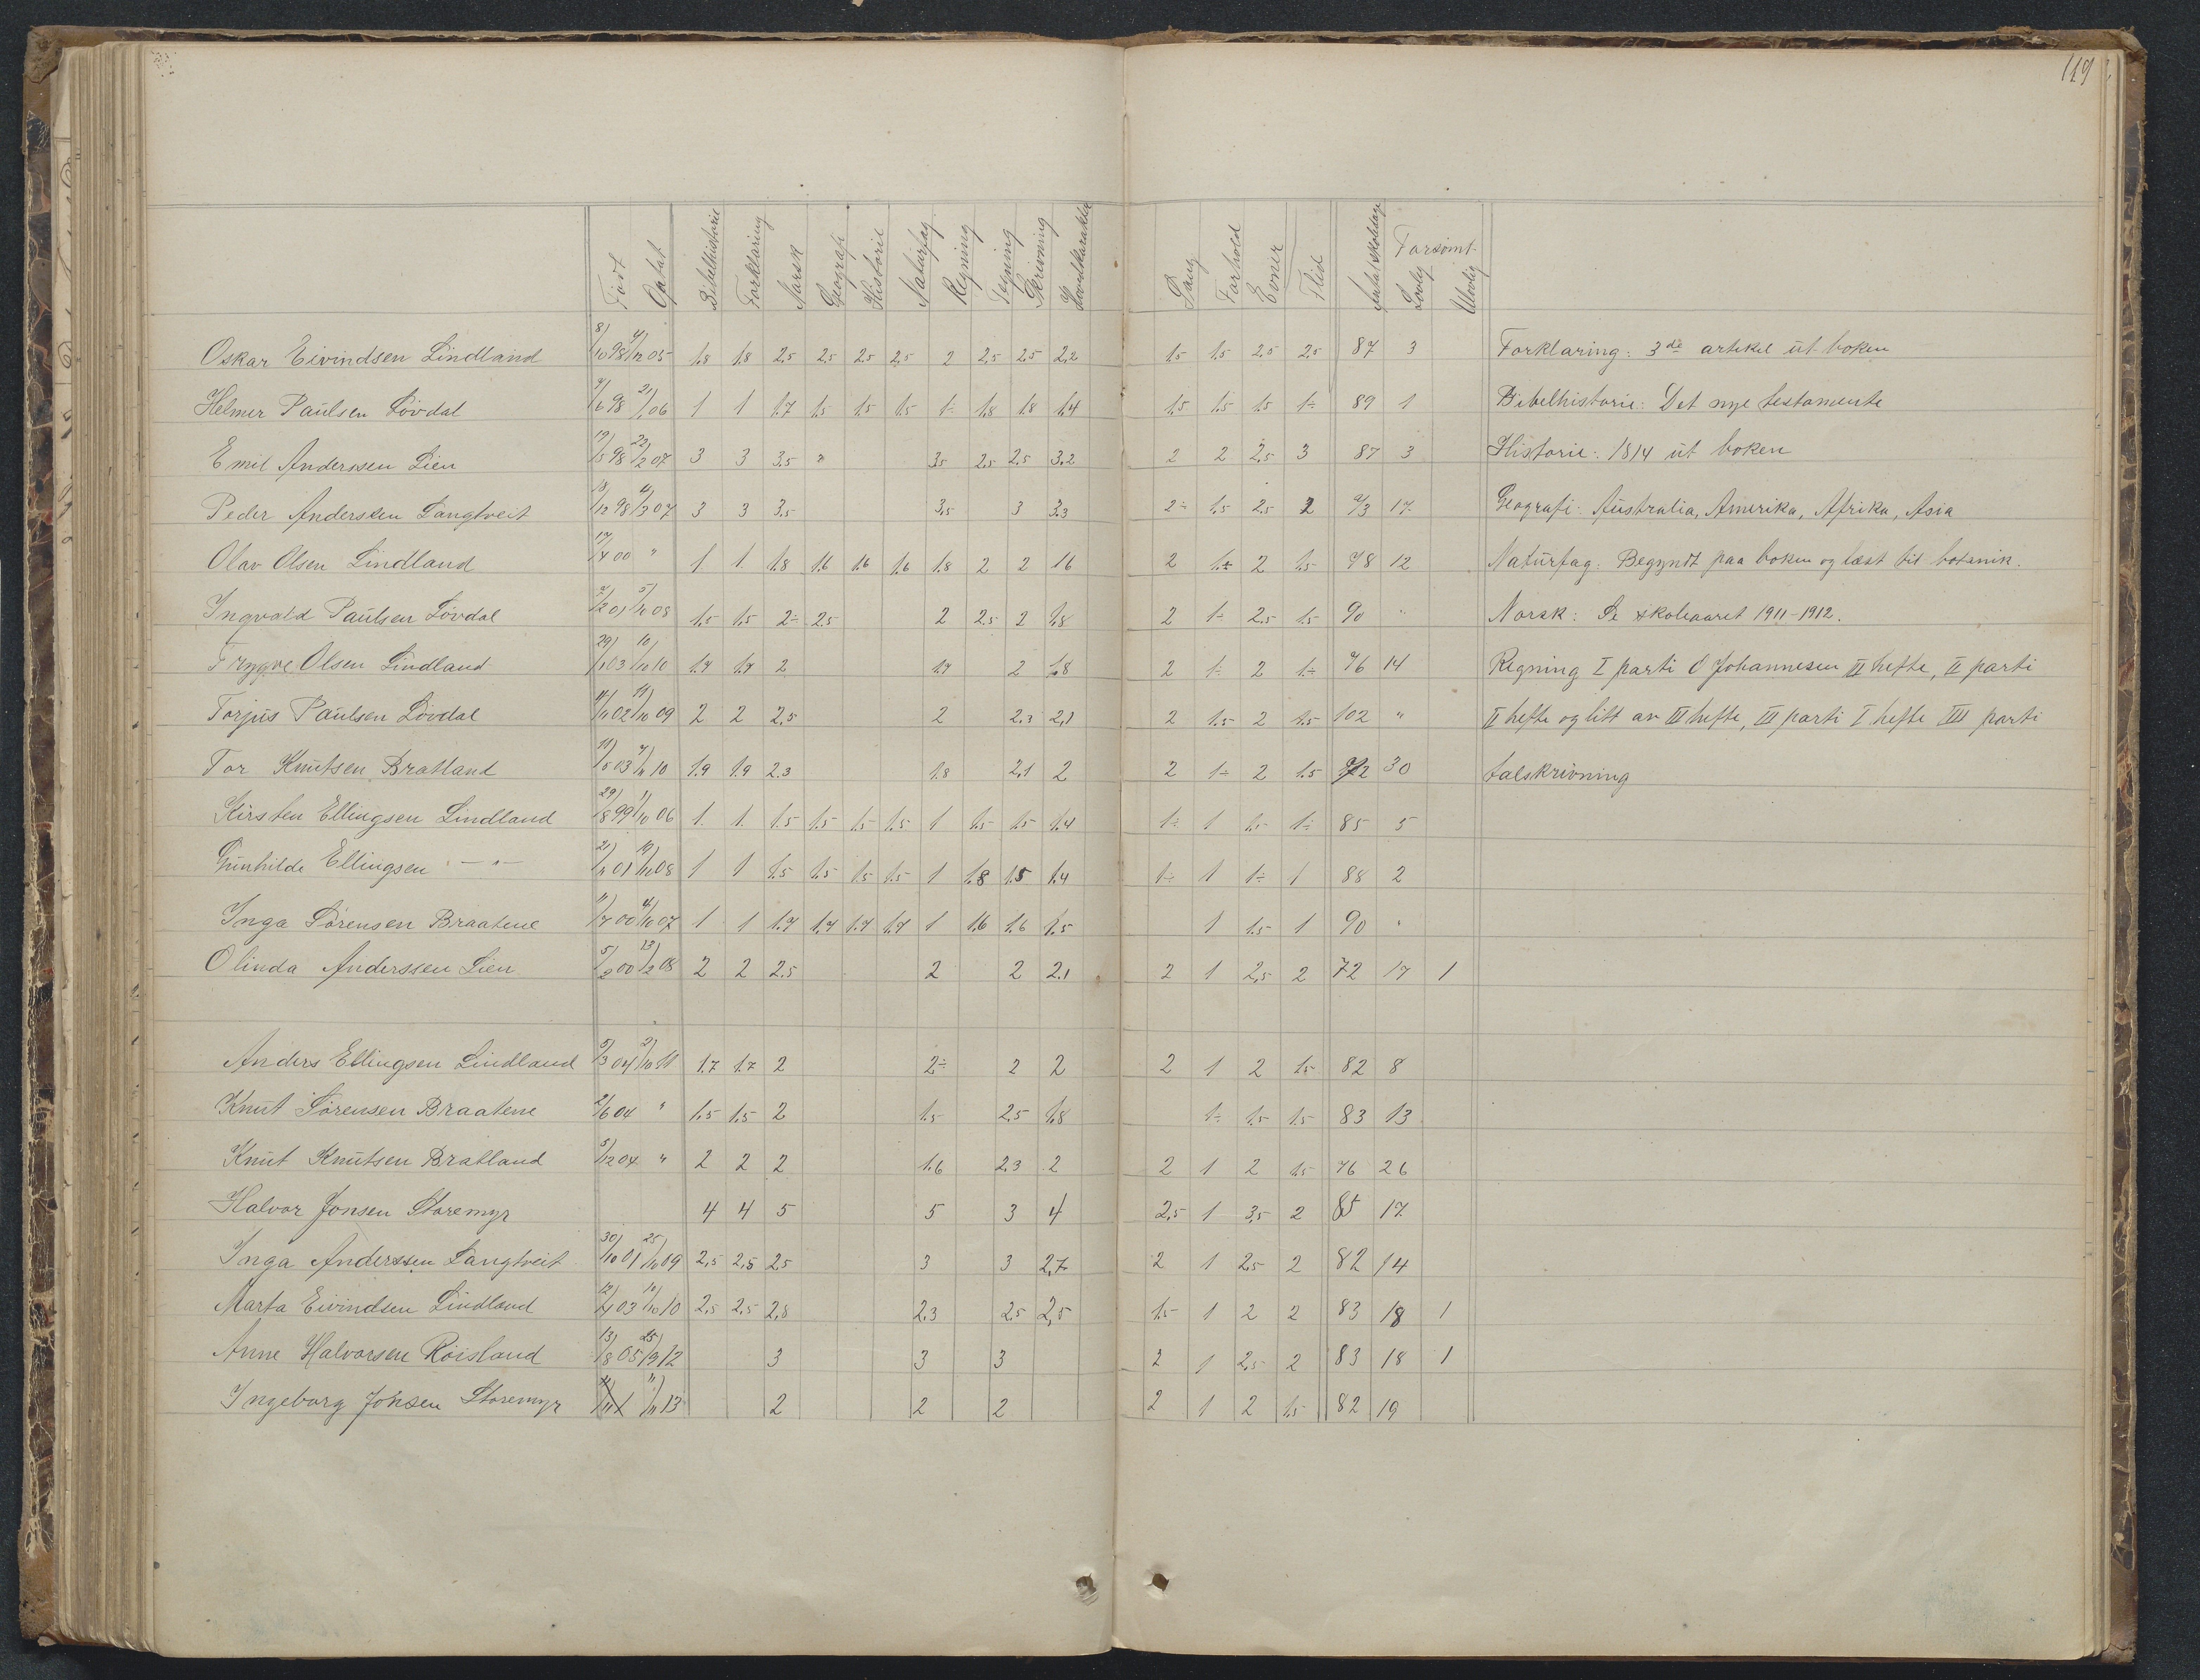 119
Født Optat Bibelhistorie Forklaring Norsk Geografi Historie Naturfag Regning Tegning Skrivning Hovedkarakter Sang Forhold Evner Flid Antal skoledage Forsømt Lovlig Ulovlig
Oskar Eivindsen Lindland 8/10 98 4/12 05 1.8 1.8 2.5 2.5 2.5 2.5 2 2.5 2.5 2.2 1.5 1.5 2.5 2.5 87 3 Forklaring: 3de artikel ut boken
Helmer Paulsen Løvdal 9/6 98 2/1 06 1 1 1.7 1.5 1.5 1.5 1÷ 1.8 1.8 1.4 1.5 1.5 1.5 1÷ 89 1 Bibelhistorie: Det nye testamente
Emil Anderssen Lien 19/5 98 22/2 07 3 3 3.5 " 3.5 2.5 2.5 3.2 2 2 2.5 3 87 3 Historie: 1814 ut boken
Peder Anderssen Langtveit 18/12 98 4/3 07 3 3 3.5 3.5 3 3.3 2÷ 1.5 2.5 2 93 17 Geografi: Australia, Amerika, Afrika, Asia
Olav Olsen Lindland 17/4 00 " 1 1 1.8 1.6 1.6 1.6 1.8 2 2 1.6 2 1÷ 2 1.5 78 12 Naturfag: Begyndt paa boken og læst til botanik.
Ingvald Paulsen Løvdal 2/2 01 5/10 08 1.5 1.5 2÷ 2.5 2 2.5 2 1.8 2 1÷ 2.5 1.5 90 " Norsk: Se skoleaaret 1911-1912.
Trygve Olsen Lindland 29/1 03 10/10 10 1.7 1.7 2 1.7 2 1.8 2 1÷ 2 1÷ 76 14 Regning I parti O Johannesen II hefte, II parti
Torjus Paulsen Løvdal 4/11 02 11/10 09 2 2 2.5 2 2.3 2.1 2 1.5 2 1.5 102 " II hefte og litt av III hefte, III parti I hefte III parti
Tor Knutsen Bratland 03 10 1.9 1.9 2.3 1.8 2.1 2 2 1÷ 2 1.5 72 30 talskrivning
Kirsten Ellingsen Lindland 29/8 99 1/10 06 1 1 1.5 1.5 1.5 1.5 1 1.5 1.5 1.4 1÷ 1 1.5 1÷ 85 5
Gunhilde Ellingsen - " - 21/11 01 08 1 1 1.5 1.5 1.5 1.5 1 1.8 1.5 1.4 1÷ 1 1÷ 1 88 2
Inga Sørensen Braatene 11/7 00 4/10 07 1 1 1.7 1.7 1.7 1.7 1 1.6 1.6 1.5 1 1.5 1 90 "
Olinda Anderssen Lien 5/2 00 13/2 08 2 2 2.5 2 2 2.1 2 1 2.5 2 72 17 1
Anders Ellingsen Lindland 5/3 04 2/10 11 1.7 1.7 2 2÷ 2 2 2 1 2 1.5 82 8
Knut Sørensen Braatene 2/6 04 " 1.5 1.5 2 1.5 2.5 1.8 1÷ 1.5 1.5 83 13
Knut Knutsen Bratland 5/12 04 " 2 2 2 1.6 2.3 2 2 1 2 1.5 76 26
Halvor Jonsen Storemyr 4 4 5 5 3 4 2.5 1 3.5 2 85 17
Inga Anderssen Langtveit 30/10 01 25/10 09 2.5 2.5 2.5 3 3 2.7 2 1 2.5 2 82 14
Marta Eivindsen Lindland 12/4 03 10/10 10 2.5 2.5 2.8 2.3 2.5 2.5 1.5 1 2 2 83 18 1
Anne Halvorsen Røisland 13/8 05 25/9 12 3 3 3 2 1 2.5 2 83 18 1
Ingeborg Jonsen Storemyr 11/11 13 2 2 2 2 1 2 1.5 82 19